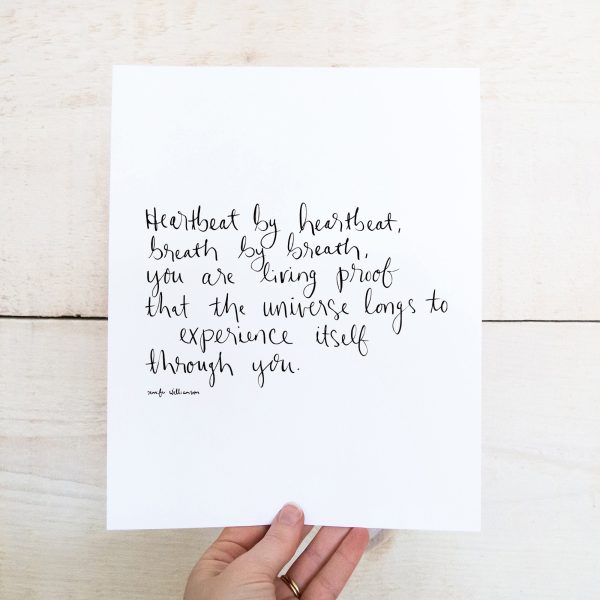 Heartbeat by heartbeat,
breath by breath,
you are living proof
that the universe longs to
experience itself
through you.
Jennifer Williamson